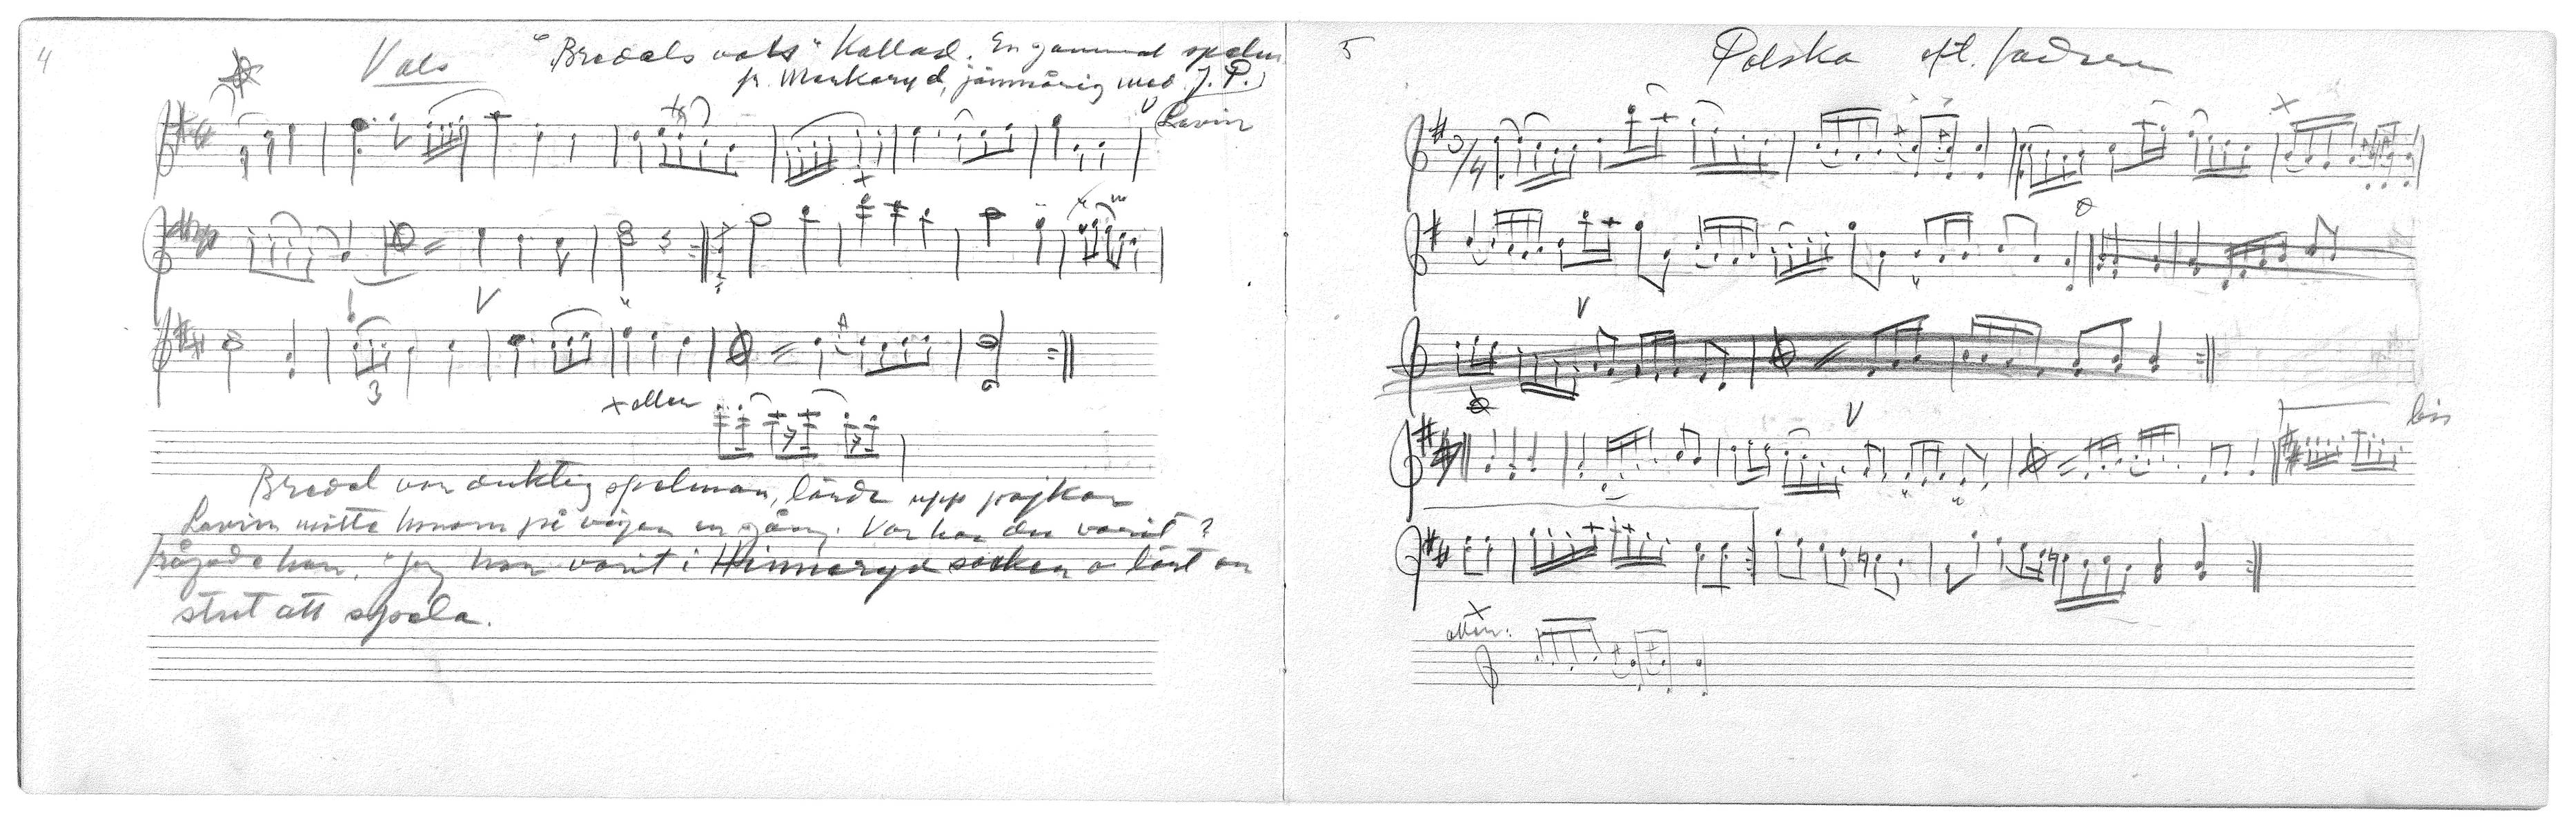 4
Vals
"Bredals vals" Kallad. En gammal spelm
fr. Markaryd, jämnårig med J. P.
Lavin
3
x eller
Bredal var duktig spelman, lärde upp pojkar
Lavin mötte honom på vägen en gång. Var har du varit?
frågade han. "Jag har varit i Hinneryd socken o lärt en
stut att spela.
5
Polska eft. fadren
3/4
bis
x
eller: